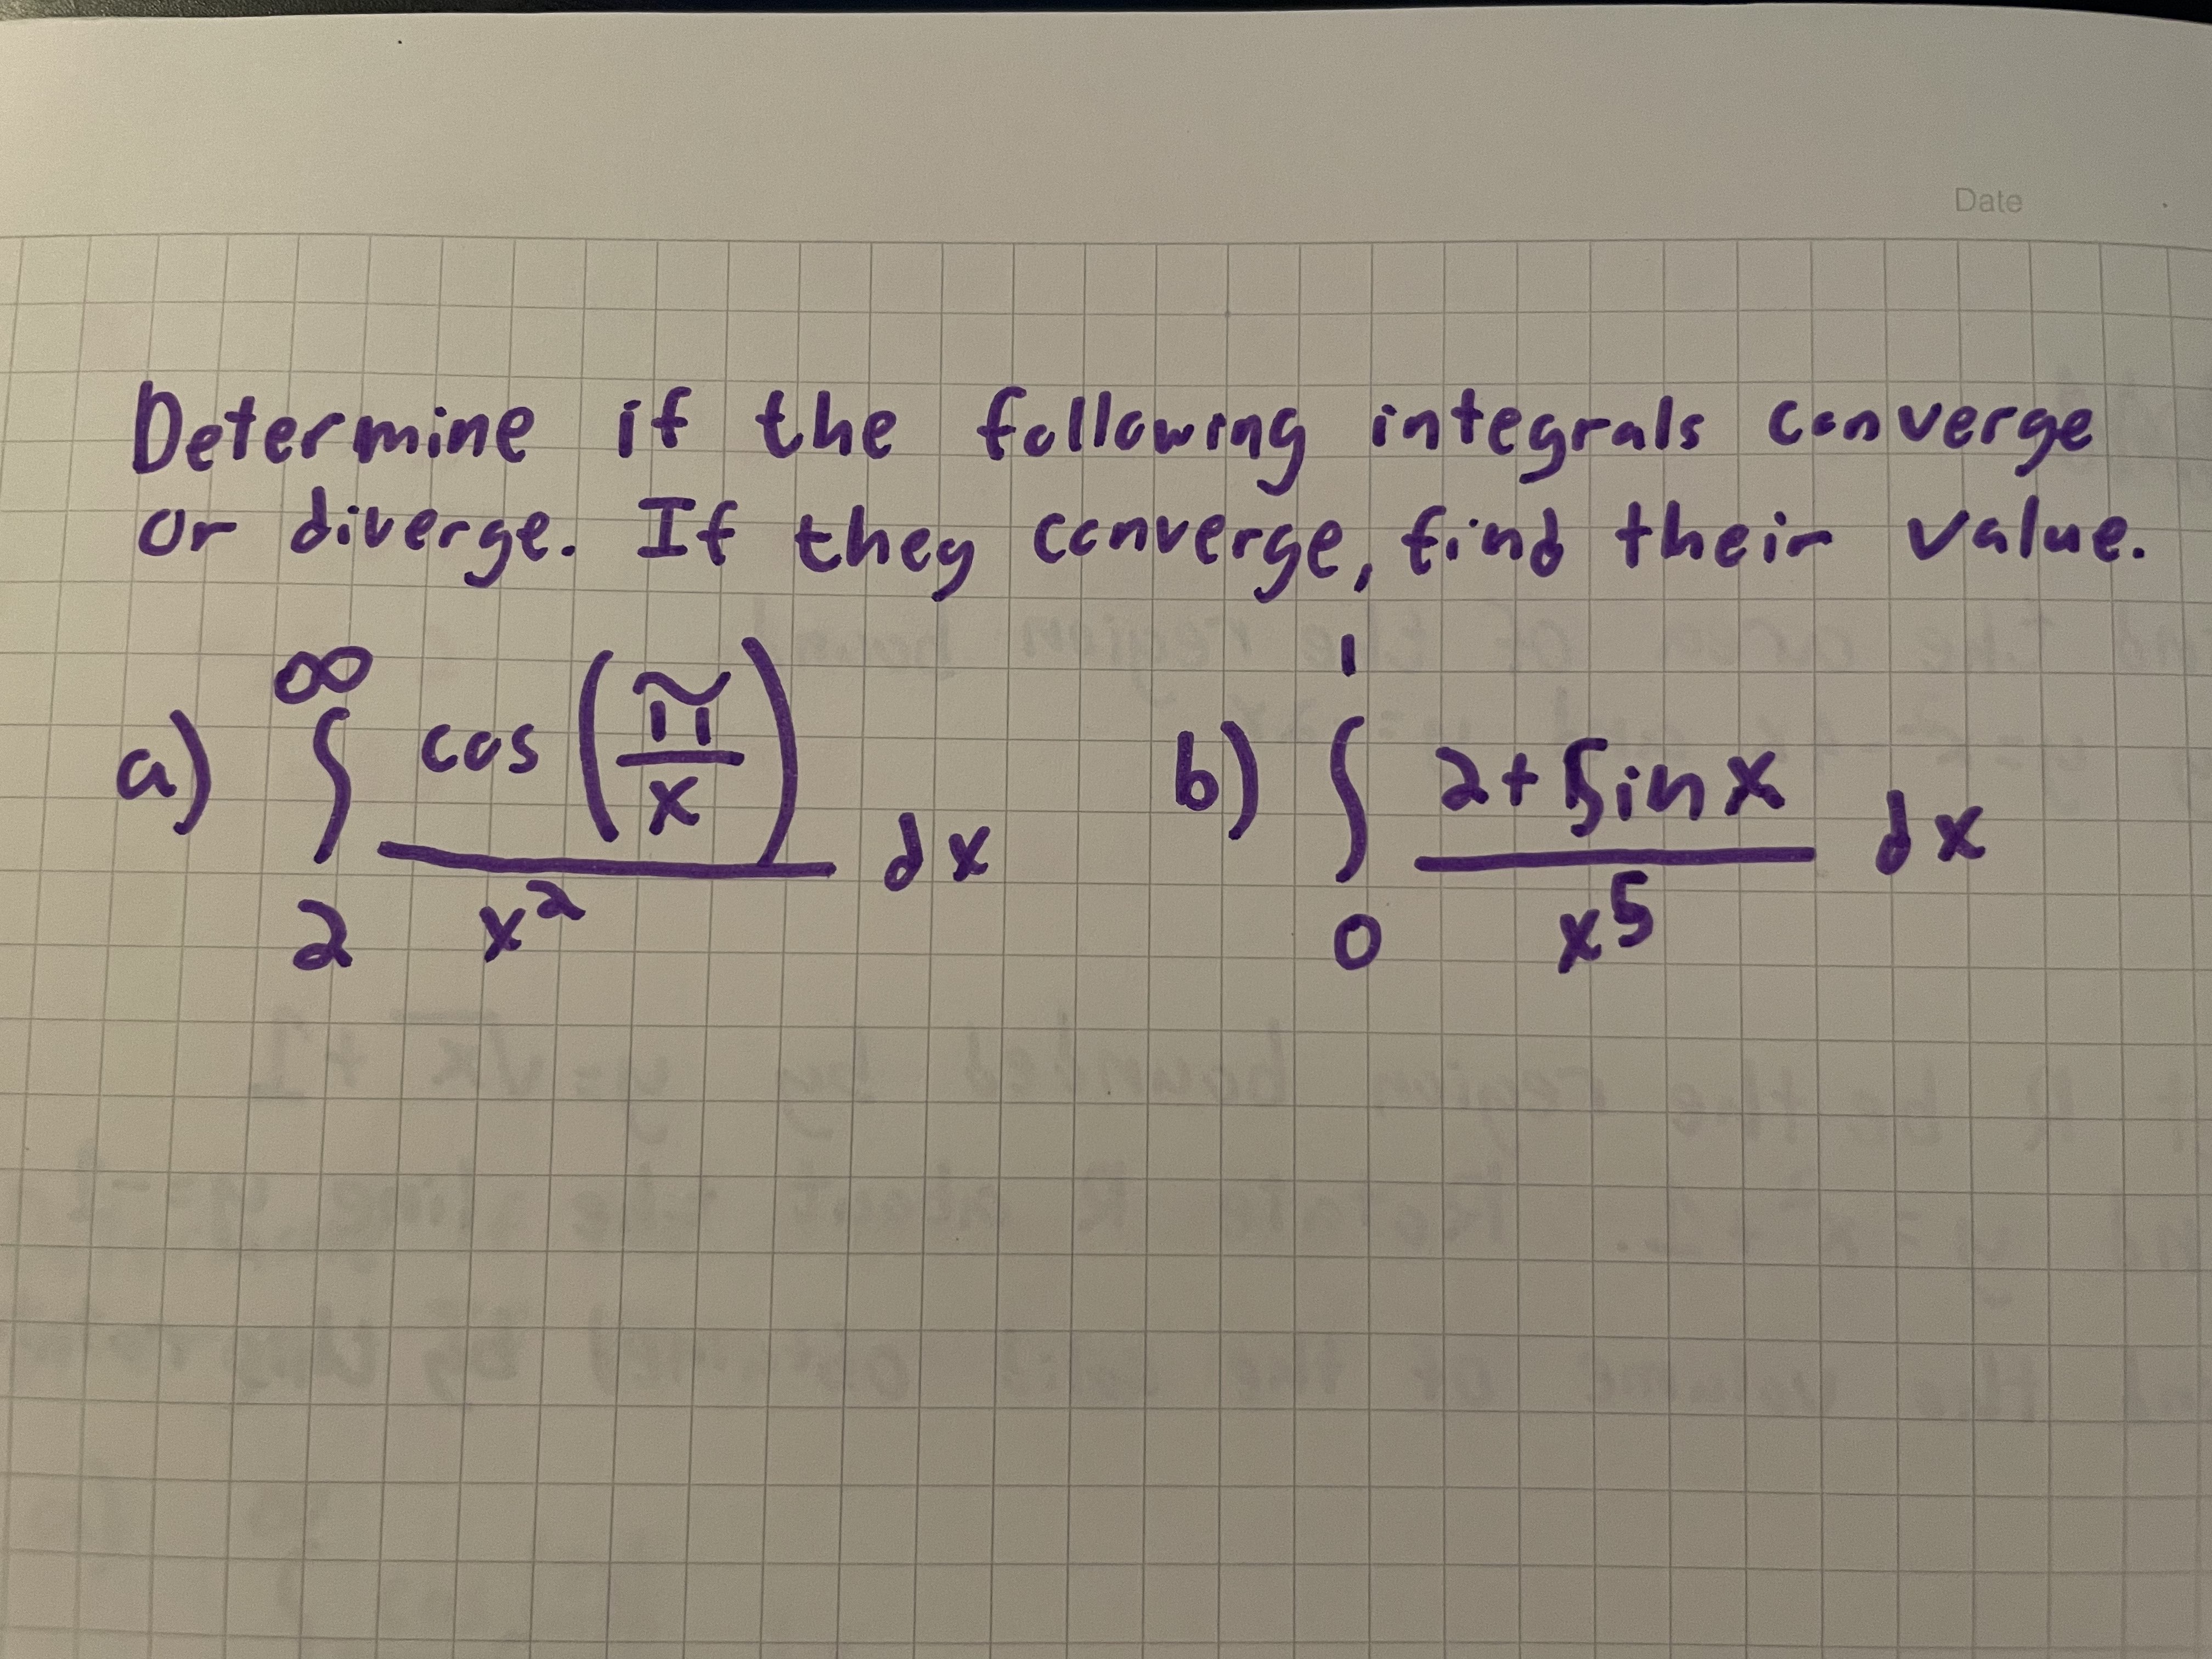 Date
Determine if the following integrals converge
or diverge. If they converge, find their value.
a) ∫_2^∞ cos(π/x)/x^2 dx b) ∫_0^1 (2+sin x)/x^5 dx